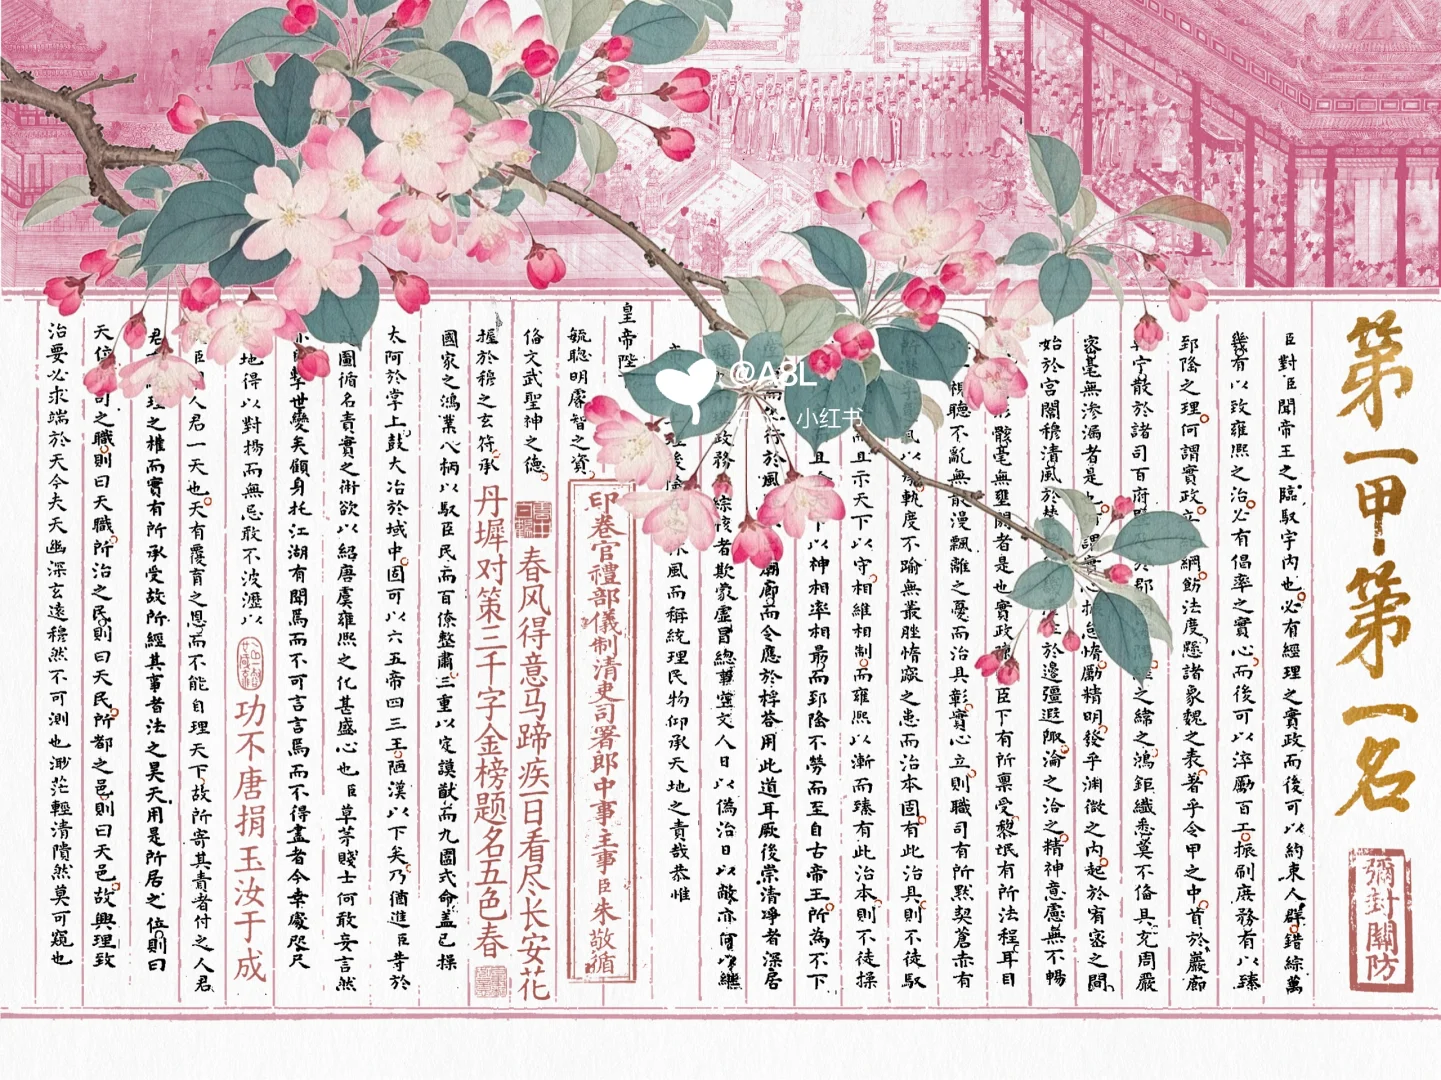 第一甲第一名
彌封關防
臣對臣聞帝王之臨馭宇內也必有經理之實政而後可以約束人群錯綜萬
幾有以致雍熙之治必有倡率之實心而後可以淬勵百工振刷庶務有以臻
郅隆之理何謂實政立綱飭法度懸諸象魏之表著乎令甲之中首於巖廊
宁散於諸司百府於郡之緯之鴻鉅纖悉莫不備具充周嚴
密毫無滲漏者是也謂實心怠惰勵精明發乎淵微之內起於宥密之間
始於宮闈穆清風於於邊疆遐陬淪之洽之精神意慮無不暢
形骸毫無壅閼者是也實政臣下有所稟受黎氓有所法程耳目
視聽不亂無散漫飄離之憂而治具彰實心立則職司有所默契蒼赤有
所風以軌度不踰無叢脞惰窳之患而治本固有此治具則不徒馭
而且示天下以守相維相制而雍熙以漸而臻有此治本則不徒操
且下以神相率相勗而郅隆不勞而至自古帝王所為不下
行於風廟廊而令應於桴荅用此道耳厥後崇清凈者深居
政務綜核者欺蒙虛冒總事空文人日以偽治日以敝亦何以繼
理後休風而稱統理民物仰承天地之責哉恭惟
皇帝陛
毓聰明睿智之資
印卷官禮部儀制清吏司署郎中事主事臣朱敬循
俻文武聖神之德
春风得意马蹄疾一日看尽长安花
握於穆之玄符承
丹墀对策三千字金榜题名五色春
國家之鴻業八柄以馭臣民而百僚整肅三重以定謨猷而九圍式命蓋已操
太阿於掌上鼓大冶於域中固可以六五帝四三王陋漢以下矣乃猶進臣等於
圖循名責實之術欲以紹唐虞雍熙之化甚盛心也臣草茅賤士何敢妄言然
擊世變矣顧身托江湖有聞焉而不可言言焉而不得盡者今幸處咫尺
地得以對揚而無忌敢不波瀝以
功不唐捐玉汝于成
臣人君一天也天有覆育之恩而不能自理天下故所寄其責者付之人君
君理之權而實有所承受故所經其事者法之昊天用是所居之位則曰
天位司之職則曰天職所治之民則曰天民所都之邑則曰天邑故興理致
治要必求端於天今夫天幽深玄遠穆然不可測也渺茫輕清隤然莫可窺也
@A3L
小红书